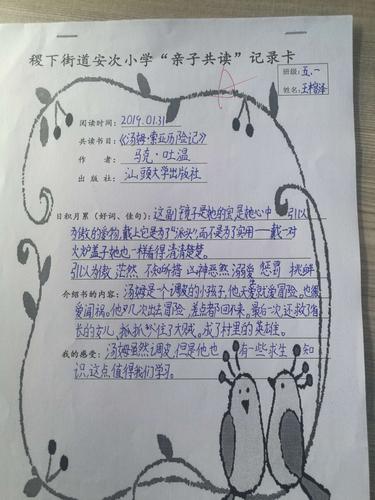 稷下街道安次小学“亲子共读”记录卡
班级:五.一
姓名:王梓泽
阅读时间:2019.01.31
共读书目:《汤姆·索亚历险记》
作者:马克·吐温
出版社:汕头大学出版社
日积月累(好词、佳句):这副镜子是她的宝,是她心中引以
为傲的爱物,戴上它是为了“派头”,而不是为了实用——戴一对
火炉盖子她也一样看得清清楚楚。
引以为傲 茫然 不知所措 以神 惩罚 溺爱 惩罚 挑衅
介绍书的内容:汤姆是个调皮的小孩子,他天爱就爱冒险。也很
爱闯祸。他几次出去冒险 差点都回不来。最后一次还救了酋
长的女儿,抓住了大贼。成了村里的英雄。
我的感受:汤姆虽然调皮,但是他也有一些求生知
识,这点值得我们学习。